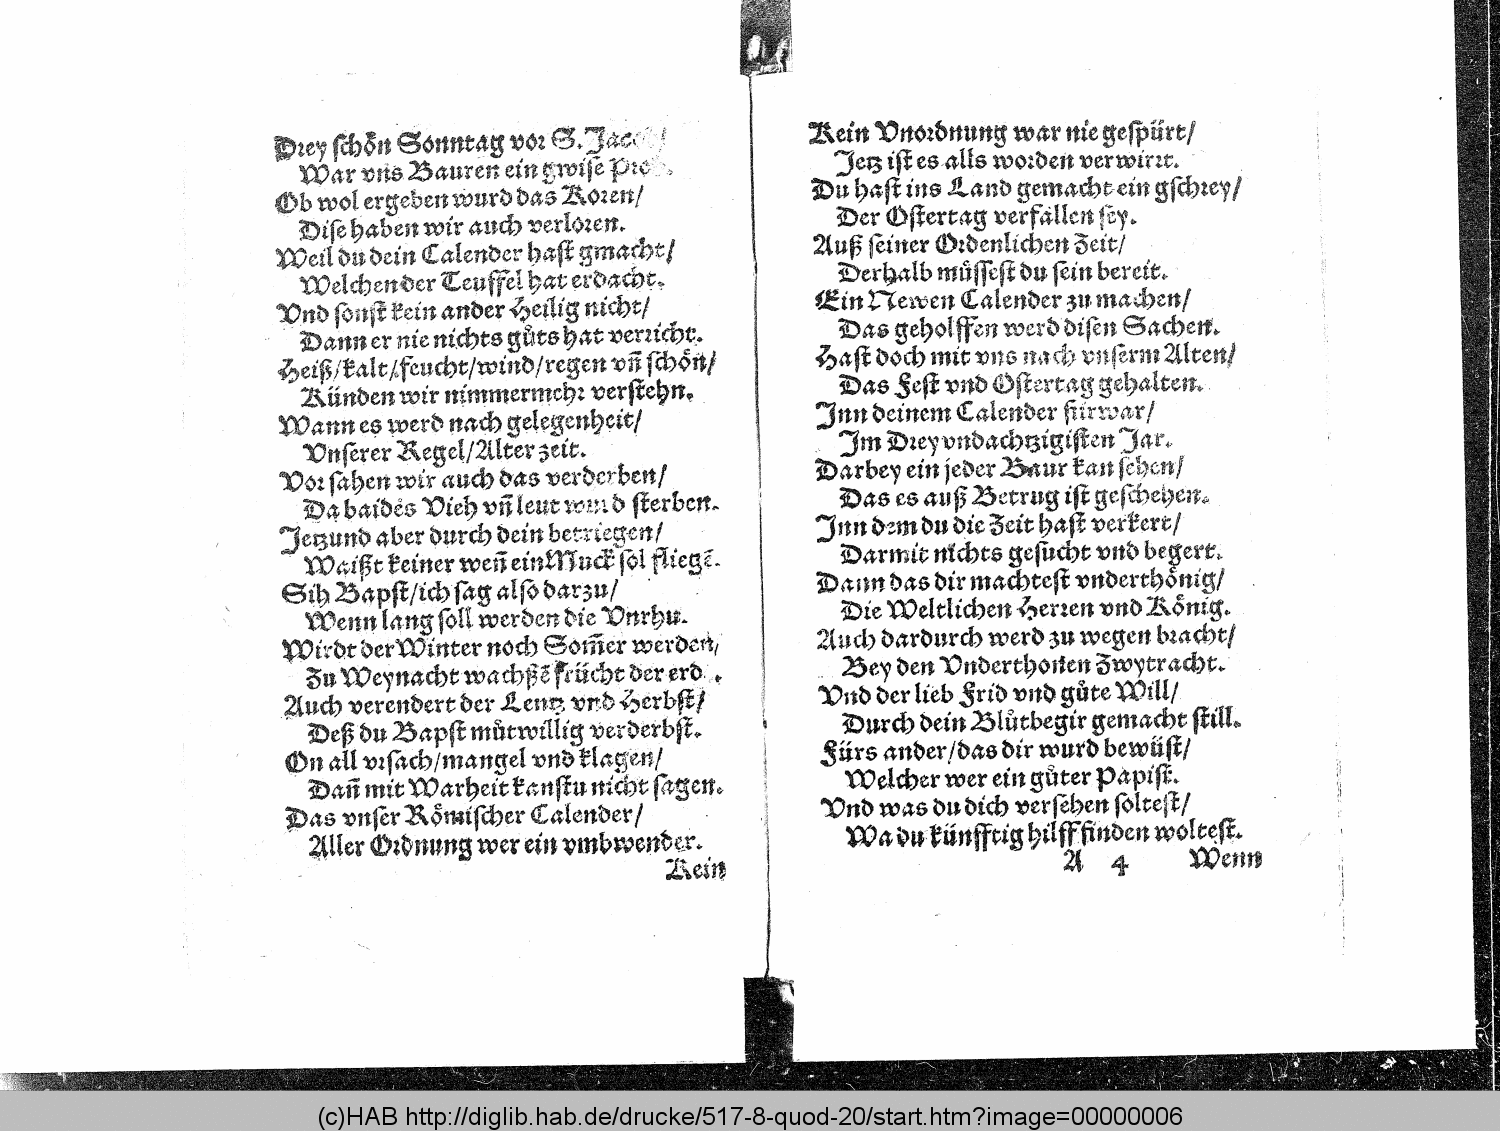 Drey schön Sonntag vor S. Jacobi/
War vns Bauren ein gwise Prob.
Ob wol ergeben wurd das Koren/
Dise haben wir auch verloren.
Weil du dein Calender hast gmacht/
Welchen der Teuffel hat erdacht.
Vnd sonst kein ander Heilig nicht/
Dann er nie nichts gůts hat verricht.
Heiß/kalt/feucht/wind/regen vñ schön/
Künden wir nimmermehr verstehn.
Wann es werd nach gelegenheit/
Vnserer Regel/Alter zeit.
Vor sahen wir auch das verderben/
Da baides Vieh vñ leut wurd sterben.
Jetzund aber durch dein betriegen/
Waißt keiner weñ ein Muck sol fliegẽ.
Sih Bapst/ich sag also darzu/
Wenn lang soll werden die Vnrhu.
Wirdt der Winter noch Som̃er werden/
Zu Weynacht wachßẽ frücht der erd.
Auch verendert der Lentz vnd Herbst/
Deß du Bapst můtwillig verderbst.
On all vrsach/mangel vnd klagen/
Dañ mit Warheit kanstu nicht sagen.
Das vnser Römischer Calender/
Aller Ordnung wer ein vmbwender.
Kein
Kein Vnordnung war nie gespürt/
Jetz ist es alls worden verwirrt.
Du hast ins Land gemacht ein gschrey/
Der Ostertag verfallen sey.
Auß seiner Ordenlichen Zeit/
Derhalb müssest du sein bereit.
Ein Newen Calender zu machen/
Das geholffen werd disen Sachen.
Hast doch mit vns nach vnserm Alten/
Das Fest vnd Ostertag gehalten.
Jnn deinem Calender fürwar/
Jm Drey vnd achtzigisten Jar.
Darbey ein jeder Baur kan sehen/
Das es auß Betrug ist geschehen.
Jnn dem du die Zeit hast verkert/
Darmit nichts gesucht vnd begert.
Dann das dir machtest vnderthönig/
Die Weltlichen Herren vnd König.
Auch dardurch werd zu wegen bracht/
Bey den Vnderthonen Zwytracht.
Vnd der lieb Frid vnd gůte Will/
Durch dein Blůtbegir gemacht still.
Fürs ander/das dir wurd bewüst/
Welcher wer ein gůter Papist.
Vnd was du dich versehen soltest/
Wa du künfftig hilff finden woltest.
A 4 Wenn
(c)HAB http://diglib.hab.de/drucke/517-8-quod-20/start.htm?image=00000006